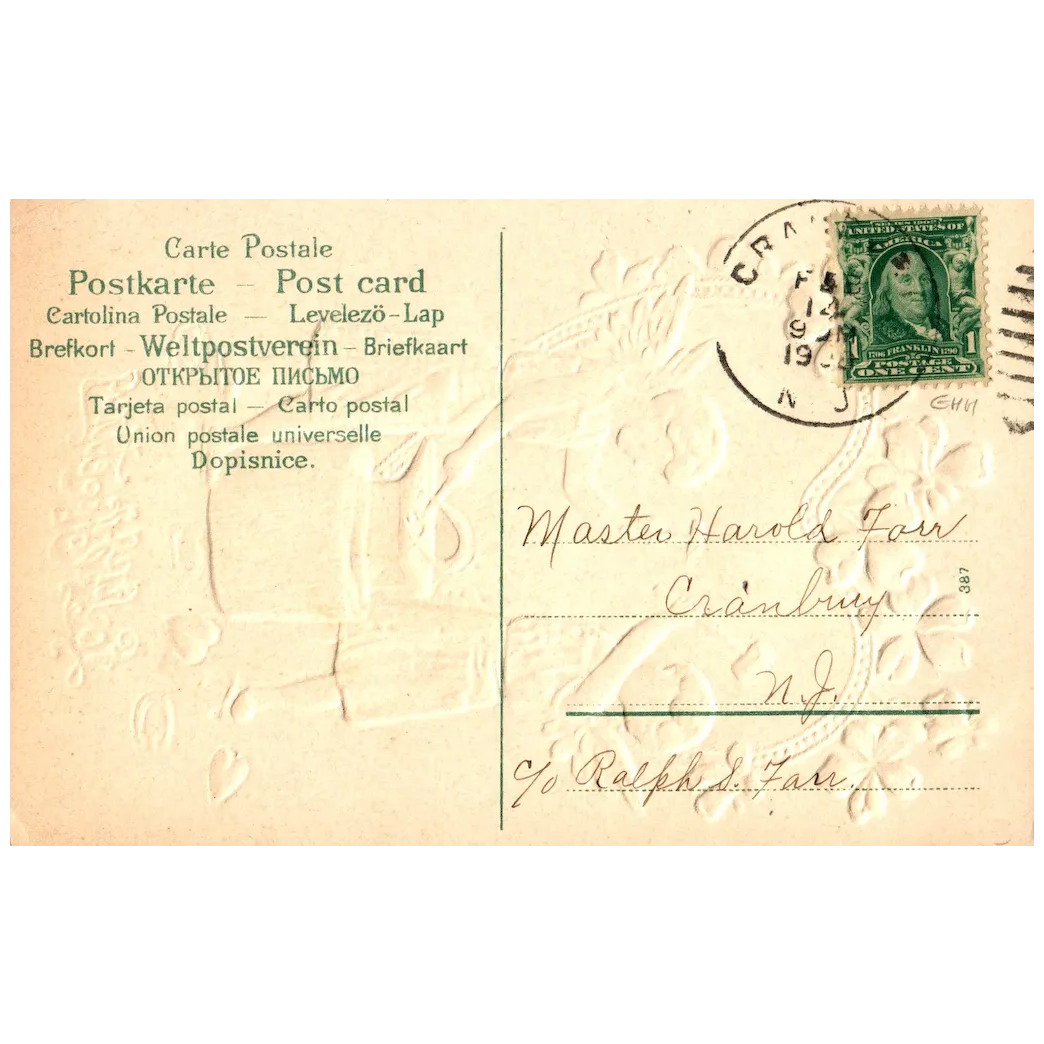 Carte Postale
Postkarte – Post card
Cartolina Postale — Levelezö-Lap
Brefkort - Weltpostverein – Briefkaart
ОТКРЫТОЕ ПИСЬМО
Tarjeta postal — Carto postal
Union postale universelle
Dopisnice.
N J
SERIES 1902
UNITED STATES OF
AMERICA
1 1
1706 FRANKLIN 1790
POSTAGE
ONE CENT
Master Harold Farr
387
Cranbury
N.J.
c/o Ralph S. Farr.